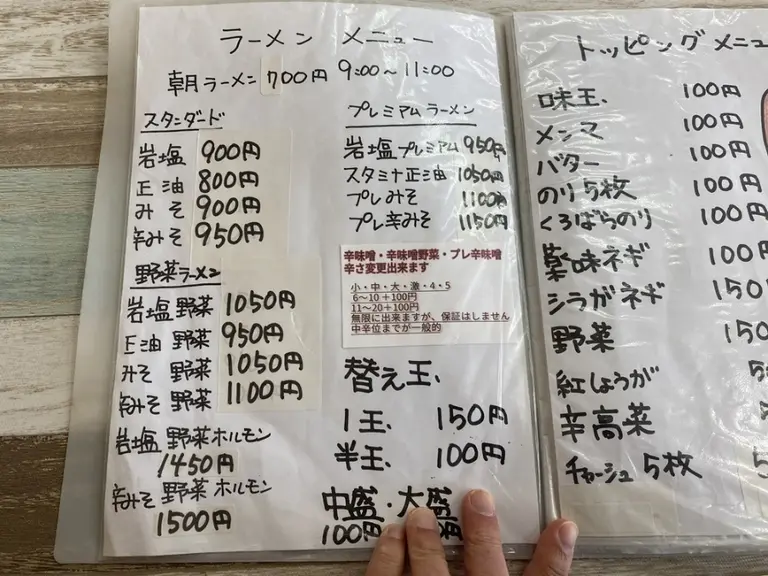 ラーメン メニュー
朝ラーメン 700円 9:00~11:00
スタンダード
岩塩 900円
正油 800円
みそ 900円
辛みそ 950円
野菜ラーメン
岩塩 野菜 1050円
正油 野菜 950円
みそ 野菜 1050円
辛みそ 野菜 1100円
岩塩 野菜ホルモン
1450円
辛みそ 野菜 ホルモン
1500円
プレミアムラーメン
岩塩プレミアム 950円
スタミナ正油 1050円
プレみそ 1100円
プレ辛みそ 1150円
辛味噌・辛味噌野菜・プレ辛味噌
辛さ変更出来ます
小・中・大・激・4・5
6~10+100円
11~20+100円
無限に出来ますが、保証はしません
中辛位までが一般的
替え玉
1玉 150円
半玉 100円
中盛・大盛
100円 円
トッピングメニュ
味玉 100円
メンマ 100円
バター 100円
のり5枚 100円
くろばらのり 100円
薬味ネギ 100円
シラガネギ 150
野菜 150
紅しょうが
辛高菜
チャーシュ5枚